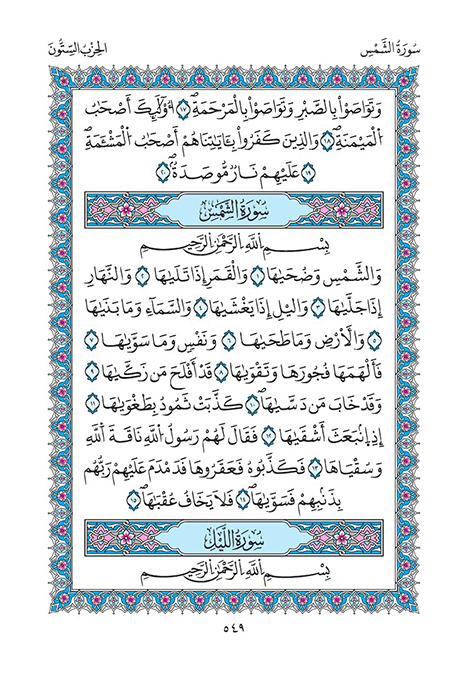 سُورَةُ الشَّمْسِ
الحِزْبُ السِّتُّونَ
وَتَوَاصَوْاْ بِالصَّبْرِ وَتَوَاصَوْاْ بِالْمَرْحَمَةِ ١٧ أُوْلَٰٓئِكَ أَصْحَٰبُ
الْمَيْمَنَةِ ١٨ وَالذِينَ كَفَرُواْ بِـَٔايَٰتِنَا هُمُۥٓ أَصْحَٰبُ الْمَشْـَٔمَةِ
١٩ عَلَيْهِمْ نَارٌ مُّوصَدَةٌ ٢٠
سُورَةُ الشَّمْسِ
بِسْمِ اللَّهِ الرَّحْمَٰنِ الرَّحِيمِ
وَالشَّمْسِ وَضُحَيٰهَا ١ وَالْقَمَرِ إِذَا تَلَيٰهَا ٢ وَالنَّهَارِ
إِذَا جَلَّيٰهَا ٣ وَاليْلِ إِذَا يَغْشَيٰهَا ٤ وَالسَّمَآءِ وَمَا بَنَيٰهَا
٥ وَالْأَرْضِ وَمَا طَحَيٰهَا ٦ وَنَفْسٍ وَمَا سَوَّيٰهَا ٧
فَأَلْهَمَهَا فُجُورَهَا وَتَقْوَيٰهَا ٨ قَدْ أَفْلَحَ مَن زَكَّيٰهَا ٩
وَقَدْ خَابَ مَن دَسَّيٰهَا ١٠ كَذَّبَتْ ثَمُودُ بِطَغْوَيٰهَا ١١
إِذِ انۢبَعَثَ أَشْقَيٰهَا ١٢ فَقَالَ لَهُمْ رَسُولُ اللَّهِ نَاقَةَ اللَّهِ
وَسُقْيَٰهَا ١٣ فَكَذَّبُوهُ فَعَقَرُوهَا فَدَمْدَمَ عَلَيْهِمْ رَبُّهُم
بِذَنۢبِهِمْ فَسَوَّيٰهَا ١٤ فَلَا يَخَافُ عُقْبَٰهَا ١٥
سُورَةُ اللَّيْلِ
بِسْمِ اللَّهِ الرَّحْمَٰنِ الرَّحِيمِ
٥٤٩